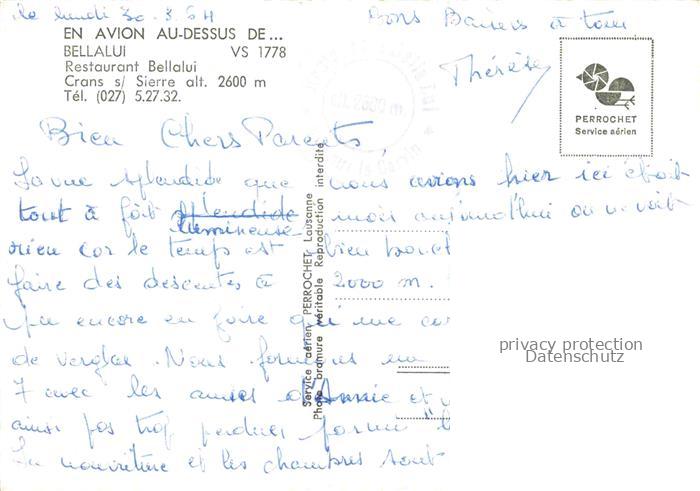 le lundi 30.3.64
Bons Baisers à tous
Thérèse
EN AVION AU-DESSUS DE...
BELLALUI VS 1778
Restaurant Bellalui
Crans s/ Sierre alt. 2600 m
Tél. (027) 5.27.32.
PERROCHET
Service aérien
Bien Chers Parents,
La vue splendide que nous avions hier ici était
tout à fait splendide lumineuse mais aujourd'hui on ne voit
rien car le temps est bien
faire des descentes à 2000 m.
pu encore en faire qu'une
de verglas. Nous formons un
7 avec les amies d'Annie et
ainsi pas trop perdues
La nourriture et les chambres sont
Service aérien PERROCHET Lausanne
Photo bromure véritable Reproduction interdite
privacy protection
Datenschutz